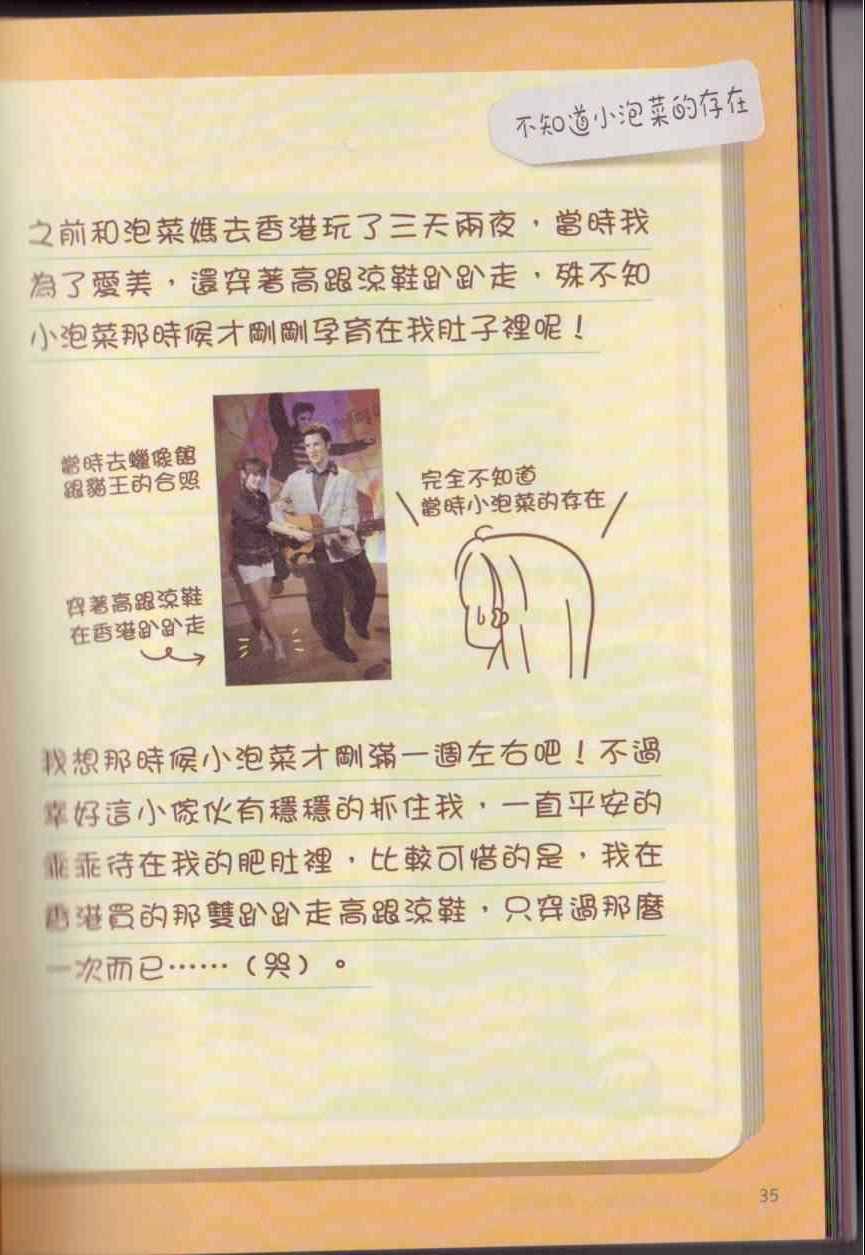 不知道小泡菜的存在
之前和泡菜媽去香港玩了三天兩夜，當時我
為了愛美，還穿著高跟涼鞋趴趴走，殊不知
小泡菜那時候才剛剛孕育在我肚子裡呢！
當時去蠟像館
跟貓王的合照
完全不知道
當時小泡菜的存在
穿著高跟涼鞋
在香港趴趴走
我想那時候小泡菜才剛滿一週左右吧！不過
幸好這小傢伙有穩穩的抓住我，一直平安的
乖乖待在我的肥肚裡，比較可惜的是，我在
香港買的那雙趴趴走高跟涼鞋，只穿過那麼
一次而已……（哭）。
35